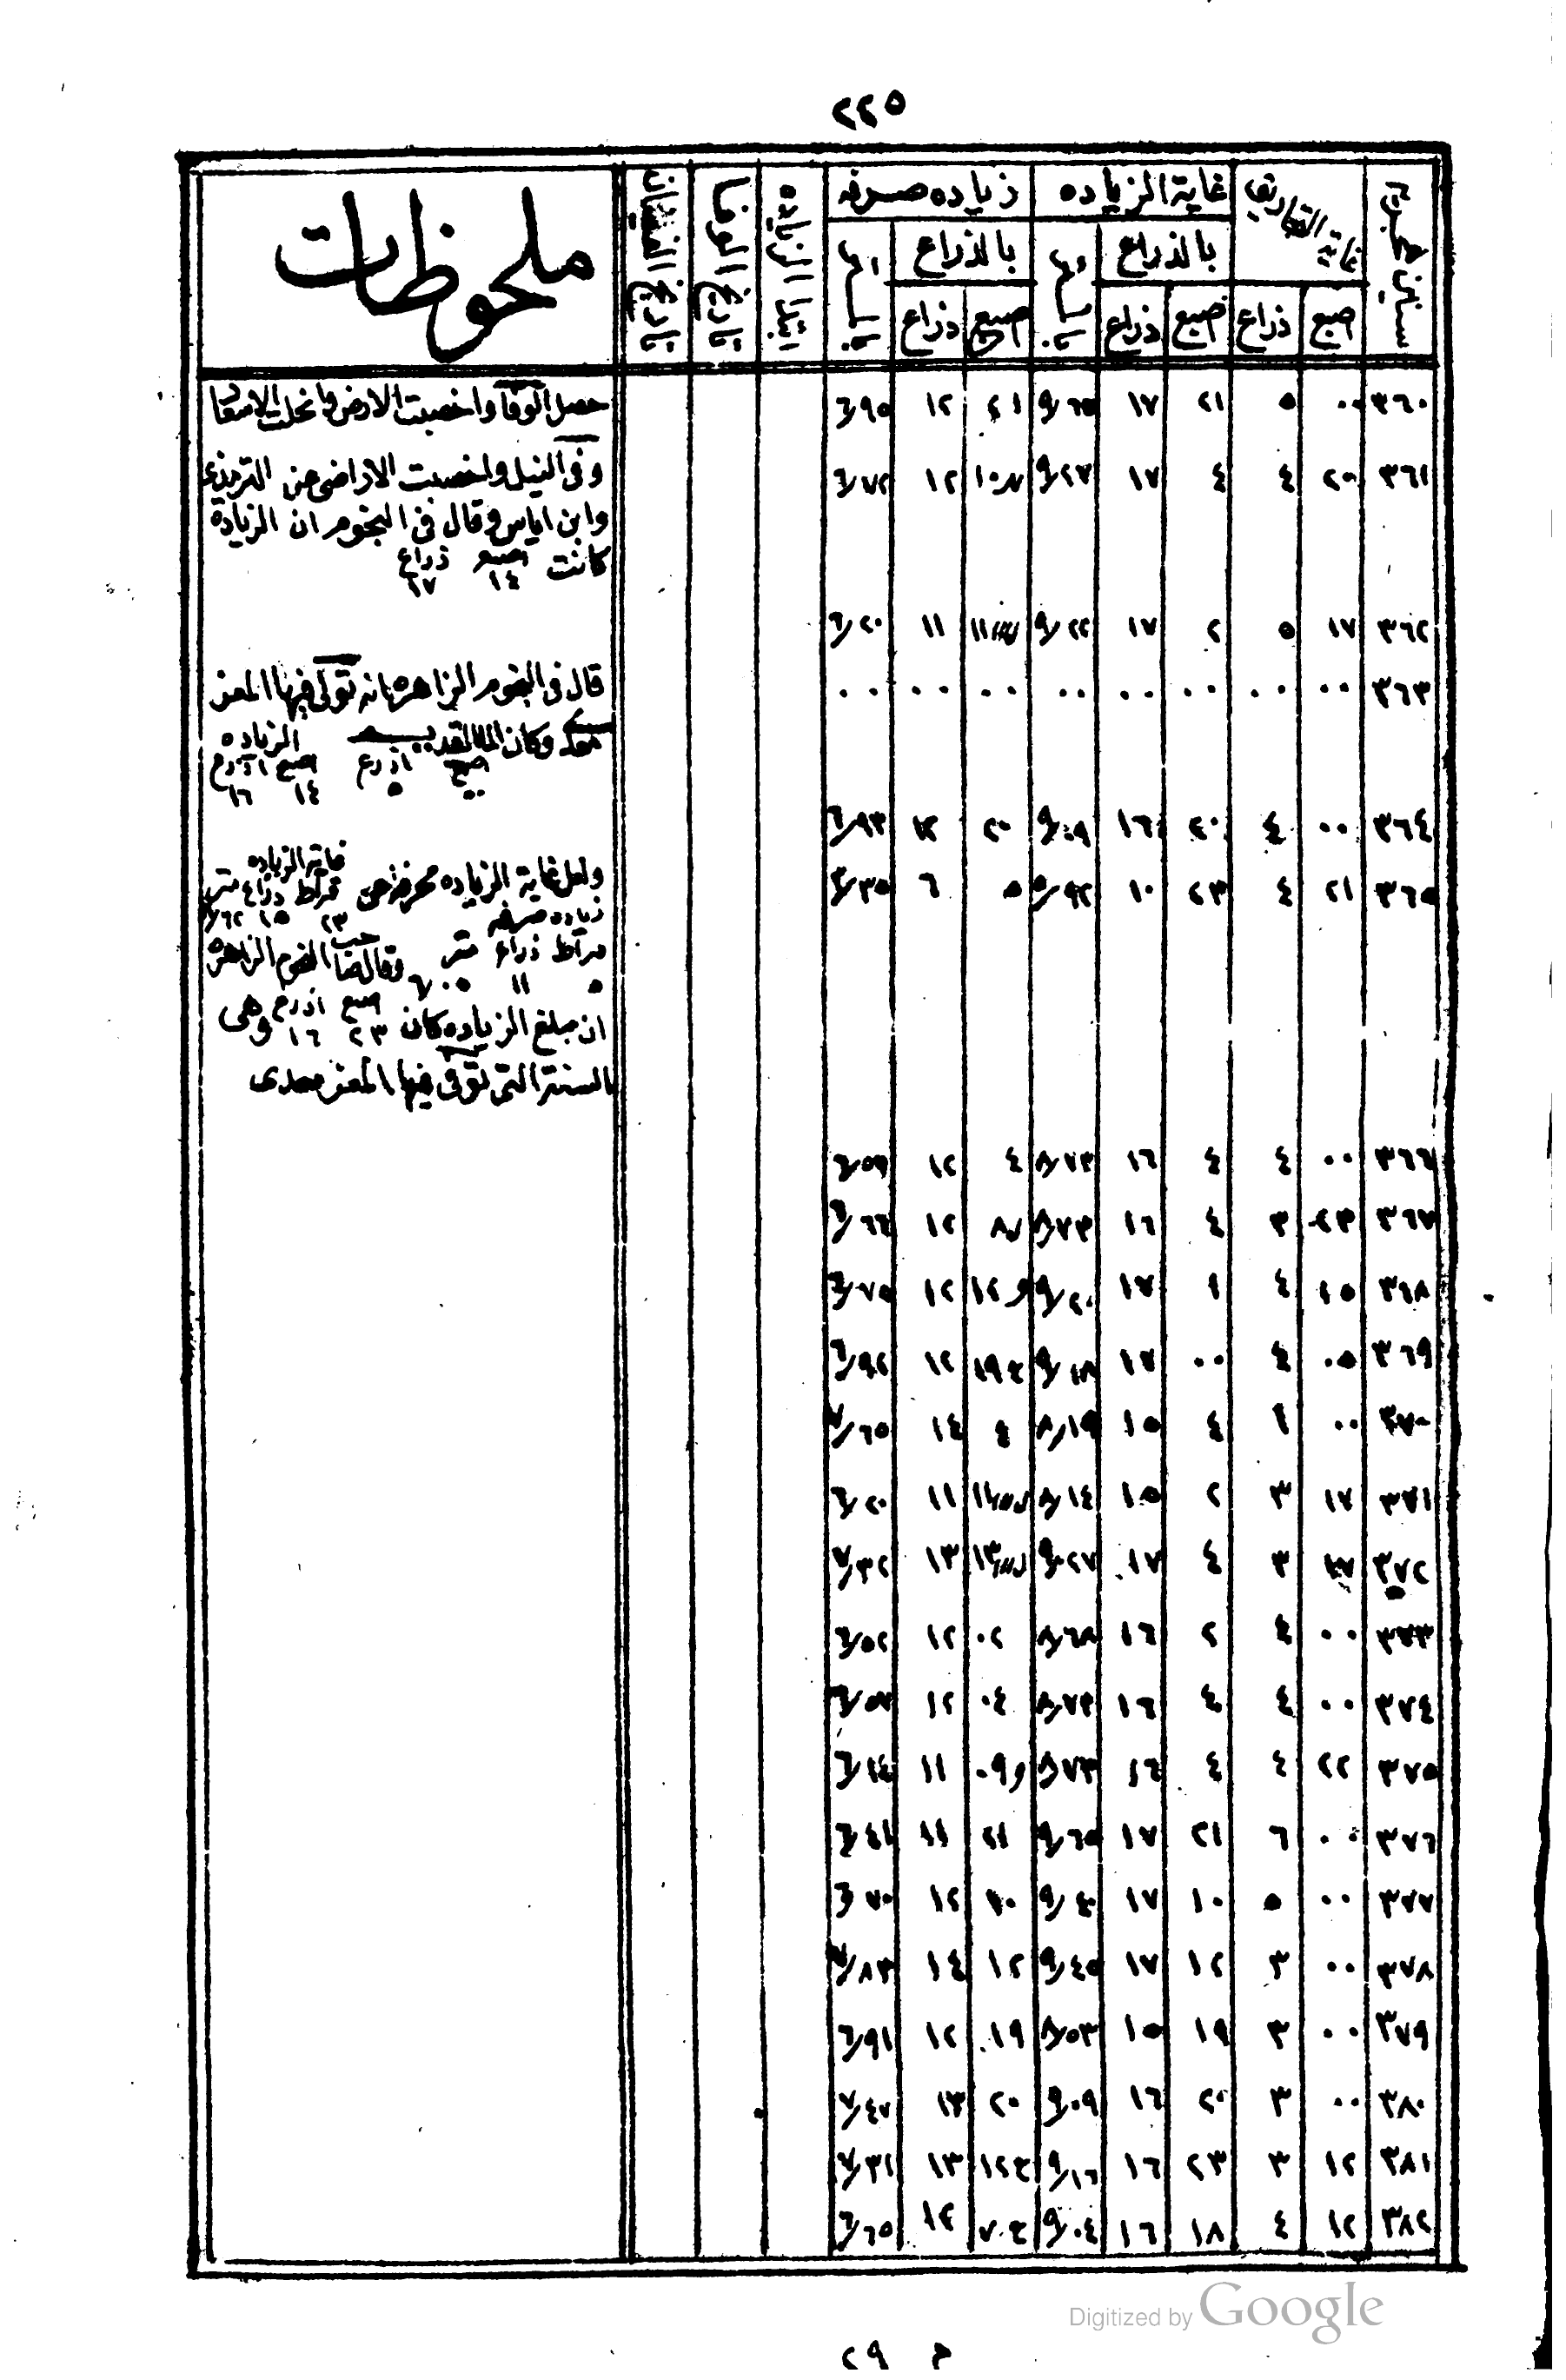 ٢٢٥
سنين هجرية | غاية التحاريق | غاية الزياده | زياده صرفه | ابتدا الزياده | تاريخ الوفا | تاريخ النقصان | ملحوظات
بالذراع | بالامتار | بالذراع | بالامتار
اصبع | ذراع | اصبع | ذراع | اصبع | ذراع
٣٦٠ | ٠٠ | ٥ | ٢١ | ١٧ | ٩/٦٥ | ٢١ | ١٢ | ٦/٩٥ | حصل الوفا واخصبت الارض وانحلت الاسعار
٣٦١ | ٢٠ | ٤ | ٤ | ١٧ | ٩/٢٧ | ١٠ | ١٢ | ٦/٧٢ | وفى النيل واخصبت الاراضى عن الترمذى
وابن اياس وقال فى النجوم ان الزيادة
كانت اصبع ١٤ ذراع ١٧
٣٦٢ | ١٧ | ٥ | ٢ | ١٧ | ٩/٢٢ | ١١ | ١١ | ٦/٢٠
٣٦٣ | ٠٠ | ٠٠ | ٠٠ | ٠٠ | ٠٠ | ٠٠ | ٠٠ | ٠٠ | قال فى النجوم الزاهره بانه تولى فيها المعز
معد وكان الماء القديم اصبع ٠٠ اذرع ٥ الزياده اصبع ١٤ اذرع ١٦
٣٦٤ | ٠٠ | ٤ | ٢٠ | ١٦ | ٩/٠٩ | ٢٠ | ١٢ | ٦/٩٣
٣٦٥ | ٢١ | ٤ | ٢٣ | ١٠ | ٥/٩٢ | ٥ | ٦ | ٣/٣٥ | ولعل غاية الزياده غاية الزياده قراط ٢٣ ذراع ١٥ متر ٨/٦٢
زياده صرفه
قراط ٥ ذراع ١١ متر ٦/٠٥ وقال صاحب النجوم الزاهرة
ان مبلغ الزياده كان اصبع ٢٣ اذرع ١٦ وهى
السنة التى توفى فيها المعز معدى
٣٦٦ | ٠٠ | ٤ | ٤ | ١٦ | ٨/٧٣ | ٤ | ١٢ | ٦/٥٦
٣٦٧ | ٢٣ | ٣ | ٤ | ١٦ | ٨/٧٣ | ٨ | ١٢ | ٦/٦٦
٣٦٨ | ١٥ | ٤ | ١ | ١٧ | ٩/٢٠ | ١٢ | ١٢ | ٦/٧٥
٣٦٩ | ٠٥ | ٤ | ٠٠ | ١٧ | ٩/١٨ | ١٩ | ١٢ | ٦/٩٢
٣٧٠ | ٠٠ | ١ | ٤ | ١٥ | ٨/١٩ | ٤ | ١٤ | ٧/٦٥
٣٧١ | ١٧ | ٣ | ٢ | ١٥ | ٨/١٤ | ١١ | ١١ | ٦/٢٠
٣٧٢ | ١٧ | ٣ | ٤ | ١٧ | ٩/٢٧ | ١٣ | ١٣ | ٧/٣٢
٣٧٣ | ٠٠ | ٤ | ٢ | ١٦ | ٨/٦٨ | ٠٢ | ١٢ | ٦/٥٢
٣٧٤ | ٠٠ | ٤ | ٤ | ١٦ | ٨/٧٣ | ٠٤ | ١٢ | ٦/٥٧
٣٧٥ | ٢٢ | ٤ | ٤ | ١٦ | ٨/٧٣ | ٠٩ | ١١ | ٦/١٤
٣٧٦ | ٠٠ | ٦ | ٢١ | ١٧ | ٩/٦٥ | ٢١ | ١١ | ٦/٤١
٣٧٧ | ٠٠ | ٥ | ١٠ | ١٧ | ٩/٤٠ | ١٠ | ١٢ | ٦/٧٠
٣٧٨ | ٠٠ | ٣ | ١٢ | ١٧ | ٩/٤٥ | ١٢ | ١٤ | ٧/٨٣
٣٧٩ | ٠٠ | ٣ | ١٩ | ١٥ | ٨/٥٣ | ١٩ | ١٢ | ٦/٩١
٣٨٠ | ٠٠ | ٣ | ٢٠ | ١٦ | ٩/٠٩ | ٢٠ | ١٣ | ٧/٤٧
٣٨١ | ١٢ | ٣ | ٢٣ | ١٦ | ٩/١٦ | ١٢ | ١٣ | ٧/٣١
٣٨٢ | ١٢ | ٤ | ١٨ | ١٦ | ٩/٠٤ | ٧ | ١٢ | ٦/٦٥
Digitized by Google
م ٢٩